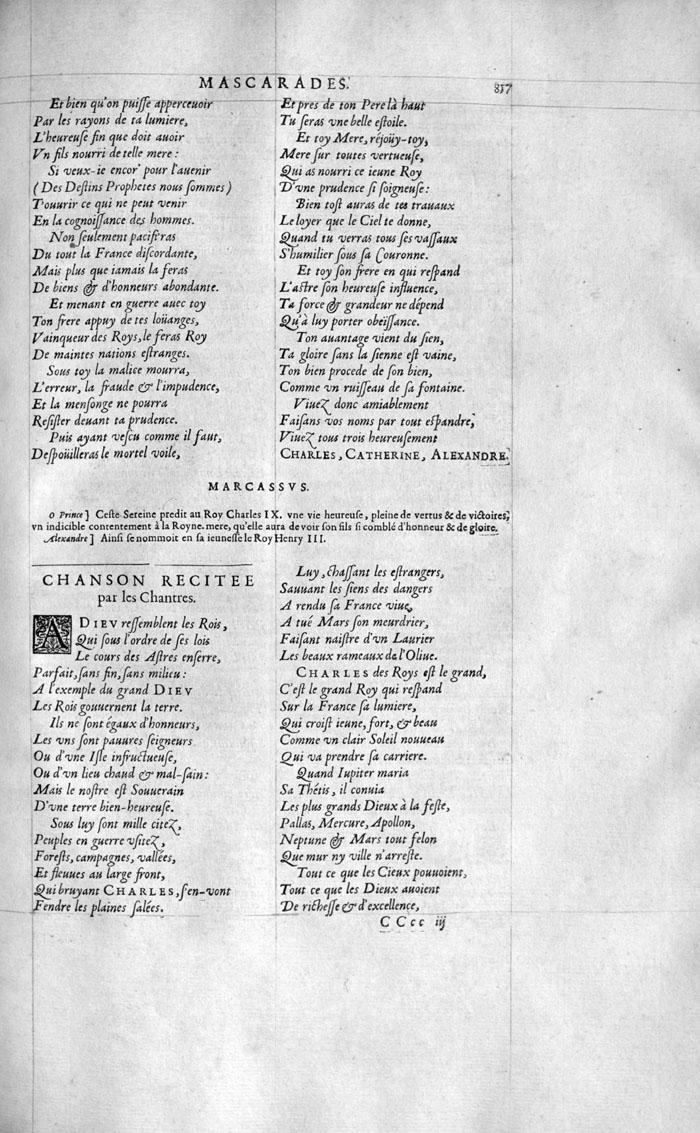 MASCARADES. 817
Et bien qu'on puiſſe appercevoir
Par les rayons de ta lumiere,
L'heureuſe fin que doit auoir
Vn fils nourri de telle mere :
Si veux-ie encor' pour l'auenir
( Des Deſtins Prophetes nous ſommes )
T'ouurir ce qui ne peut venir
En la cognoiſſance des hommes.
Non ſeulement pacifiras
Du tout la France diſcordante,
Mais plus que iamais la feras
De biens & d'honneurs abondante.
Et menant en guerre auec toy
Ton frere appuy de tes loüanges,
Vainqueur des Roys, le feras Roy
De maintes nations eſtranges.
Sous toy la malice mourra,
L'erreur, la fraude & l'impudence,
Et la menſonge ne pourra
Reſiſter deuant ta prudence.
Puis ayant veſcu comme il faut,
Deſpoüilleras le mortel voile,
Et pres de ton Pere là haut
Tu ſeras vne belle eſtoile.
Et toy Mere, réjoüy-toy,
Mere ſur toutes vertueuſe,
Qui as nourri ce ieune Roy
D'vne prudence ſi ſoigneuſe:
Bien toſt auras de tes trauaux
Le loyer que le Ciel te donne,
Quand tu verras tous ſes vaſſaux
S'humilier ſous ſa Couronne.
Et toy ſon frere en qui reſpand
L'aſtre ſon heureuſe influence,
Ta force & grandeur ne dépend
Qu'à luy porter obeïſſance.
Ton auantage vient du ſien,
Ta gloire ſans la ſienne eſt vaine,
Ton bien procede de ſon bien,
Comme vn ruiſſeau de ſa fontaine.
Viuez donc amiablement
Faiſans vos noms par tout eſpandre,
Viuez tous trois heureuſement
CHARLES, CATHERINE, ALEXANDRE.
MARCASSVS.
O Prince] Ceſte Sereine predit au Roy Charles IX. vne vie heureuſe, pleine de vertus & de victoires;
vn indicible contentement à la Royne-mere, qu'elle aura de voir ſon fils ſi comblé d'honneur & de gloire.
Alexandre] Ainſi ſe nommoit en ſa ieuneſſe le Roy Henry III.
CHANSON RECITEE
par les Chantres.
A DIEV reſſemblent les Rois,
Qui ſous l'ordre de ſes lois
Le cours des Aſtres enſerre,
Parfait, ſans fin, ſans milieu :
A l'exemple du grand DIEV
Les Rois gouuernent la terre.
Ils ne ſont égaux d'honneurs,
Les vns ſont pauures ſeigneurs
Ou d'vne Iſle infructueuſe,
Ou d'vn lieu chaud & mal-ſain:
Mais le noſtre eſt Souuerain
D'vne terre bien-heureuſe.
Sous luy ſont mille citez,
Peuples en guerre vſitez,
Foreſts, campagnes, vallées,
Et fleuues au large front,
Qui bruyant CHARLES, s'en-vont
Fendre les plaines ſalées.
Luy, chaſſant les eſtrangers,
Sauuant les ſiens des dangers
A rendu ſa France viue,
A tué Mars ſon meurdrier,
Faiſant naiſtre d'vn Laurier
Les beaux rameaux de l'Oliue.
CHARLES des Roys eſt le grand,
C'eſt le grand Roy qui reſpand
Sur la France ſa lumiere,
Qui croiſt ieune, fort, & beau
Comme vn clair Soleil nouueau
Qui va prendre ſa carriere.
Quand Iupiter maria
Sa Thétis, il conuia
Les plus grands Dieux à la feſte,
Pallas, Mercure, Apollon,
Neptune & Mars tout felon
Que mur ny ville n'arreſte.
Tout ce que les Cieux pouuoient,
Tout ce que les Dieux auoient
De richeſſe & d'excellence,
CCcc iij